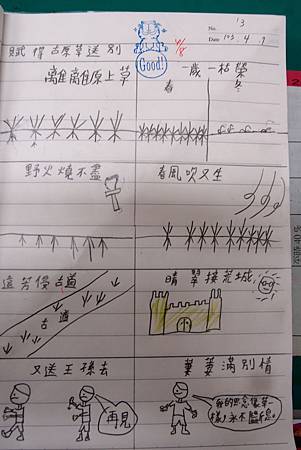 No. 13
Date 103.4.9
賦得古原草送別
Good!
4/8
離離原上草
一歲一枯榮
春
冬
野火燒不盡
春風吹又生
遠芳侵古道
古道
晴翠接荒城
又送王孫去
再見
萋萋滿別情
我的思念像草一樣,永不斷息。